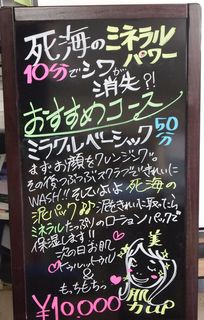 死海のミネラル
パワー
10分でシワが
消失?!
おすすめコース
ミラクルベーシック 50分
まず、お顔をクレンジング。
その後つぶつぶスクラブできれいに
WASH!! そしていよいよ死海の
泥パック 泥をきれいに取ってから
ミネラルたっぷりのローションパックで
保湿します!!
次の日お肌
トゥルットゥル
&
もっちもっち
¥10,000
美肌力UP